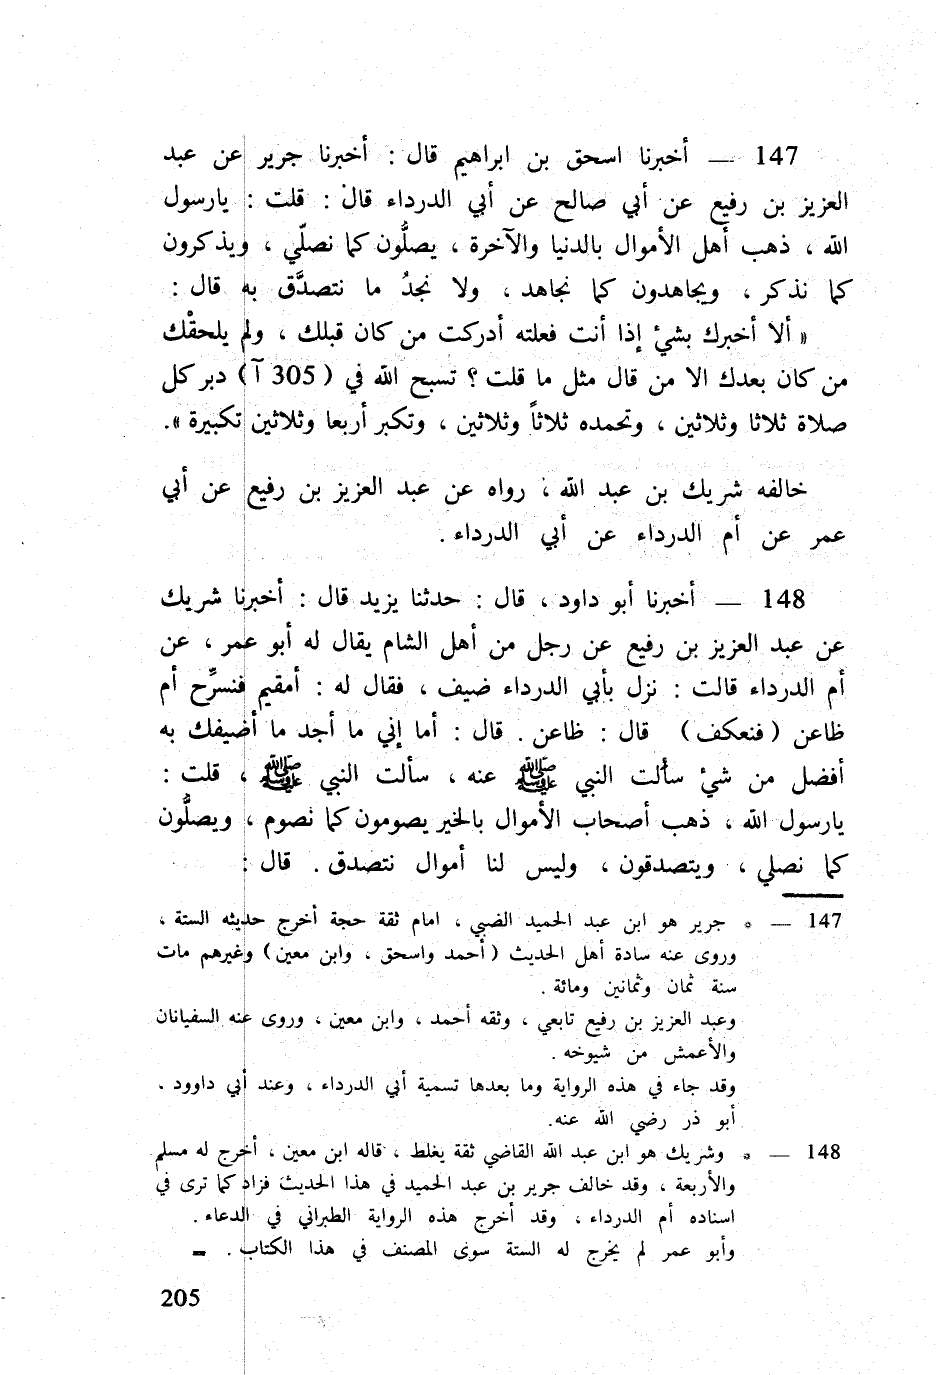 147 — أخبرنا اسحق بن ابراهيم قال : أخبرنا جرير عن عبد
العزيز بن رفيع عن أبي صالح عن أبي الدرداء قال : قلت : يارسول
الله ، ذهب أهل الأموال بالدنيا والآخرة ، يصلُّون كما نصلّي ، ويذكرون
كما نذكر ، ويجاهدون كما نجاهد ، ولا نجدُ ما نتصدَّق به قال :
« ألا أخبرك بشئ إذا أنت فعلته أدركت من كان قبلك ، ولم يلحقْك
من كان بعدك الا من قال مثل ما قلت ؟ تسبح الله في ( 305 آ ) دبر كل
صلاة ثلاثا وثلاثين ، وتحمده ثلاثاً وثلاثين ، وتكبر أربعا وثلاثين تكبيرة ».
خالفه شريك بن عبد الله ، رواه عن عبد العزيز بن رفيع عن أبي
عمر عن أم الدرداء عن أبي الدرداء .
148 — أخبرنا أبو داود ، قال : حدثنا يزيد قال : أخبرنا شريك
عن عبد العزيز بن رفيع عن رجل من أهل الشام يقال له أبو عمر ، عن
أم الدرداء قالت : نزل بأبي الدرداء ضيف ، فقال له : أمقيم فنسرِّح أم
ظاعن ( فنعكف ) قال : ظاعن . قال : أما إني ما أجد ما أضيفك به
أفضل من شئ سألت النبي ﷺ عنه ، سألت النبي ﷺ ، قلت :
يارسول الله ، ذهب أصحاب الأموال بالخير يصومون كما نصوم ، ويصلُّون
كما نصلي ، ويتصدقون ، وليس لنا أموال نتصدق . قال :
147 — * جرير هو ابن عبد الحميد الضبي ، امام ثقة حجة أخرج حديثه الستة ،
وروى عنه سادة أهل الحديث ( أحمد واسحق ، وابن معين ) وغيرهم مات
سنة ثمان وثمانين ومائة .
وعبد العزيز بن رفيع تابعي ، وثقه أحمد ، وابن معين ، وروى عنه السفيانان
والأعمش من شيوخه .
وقد جاء في هذه الرواية وما بعدها تسمية أبي الدرداء ، وعند أبي داوود .
أبو ذر رضي الله عنه.
148 — * وشريك هو ابن عبد الله القاضي ثقة يغلط ، قاله ابن معين ، أخرج له مسلم
والأربعة ، وقد خالف جرير بن عبد الحميد في هذا الحديث فزاد كما ترى في
اسناده أم الدرداء ، وقد أخرج هذه الرواية الطبراني في الدعاء .
وأبو عمر لم يخرج له الستة سوى المصنف في هذا الكتاب . =
205